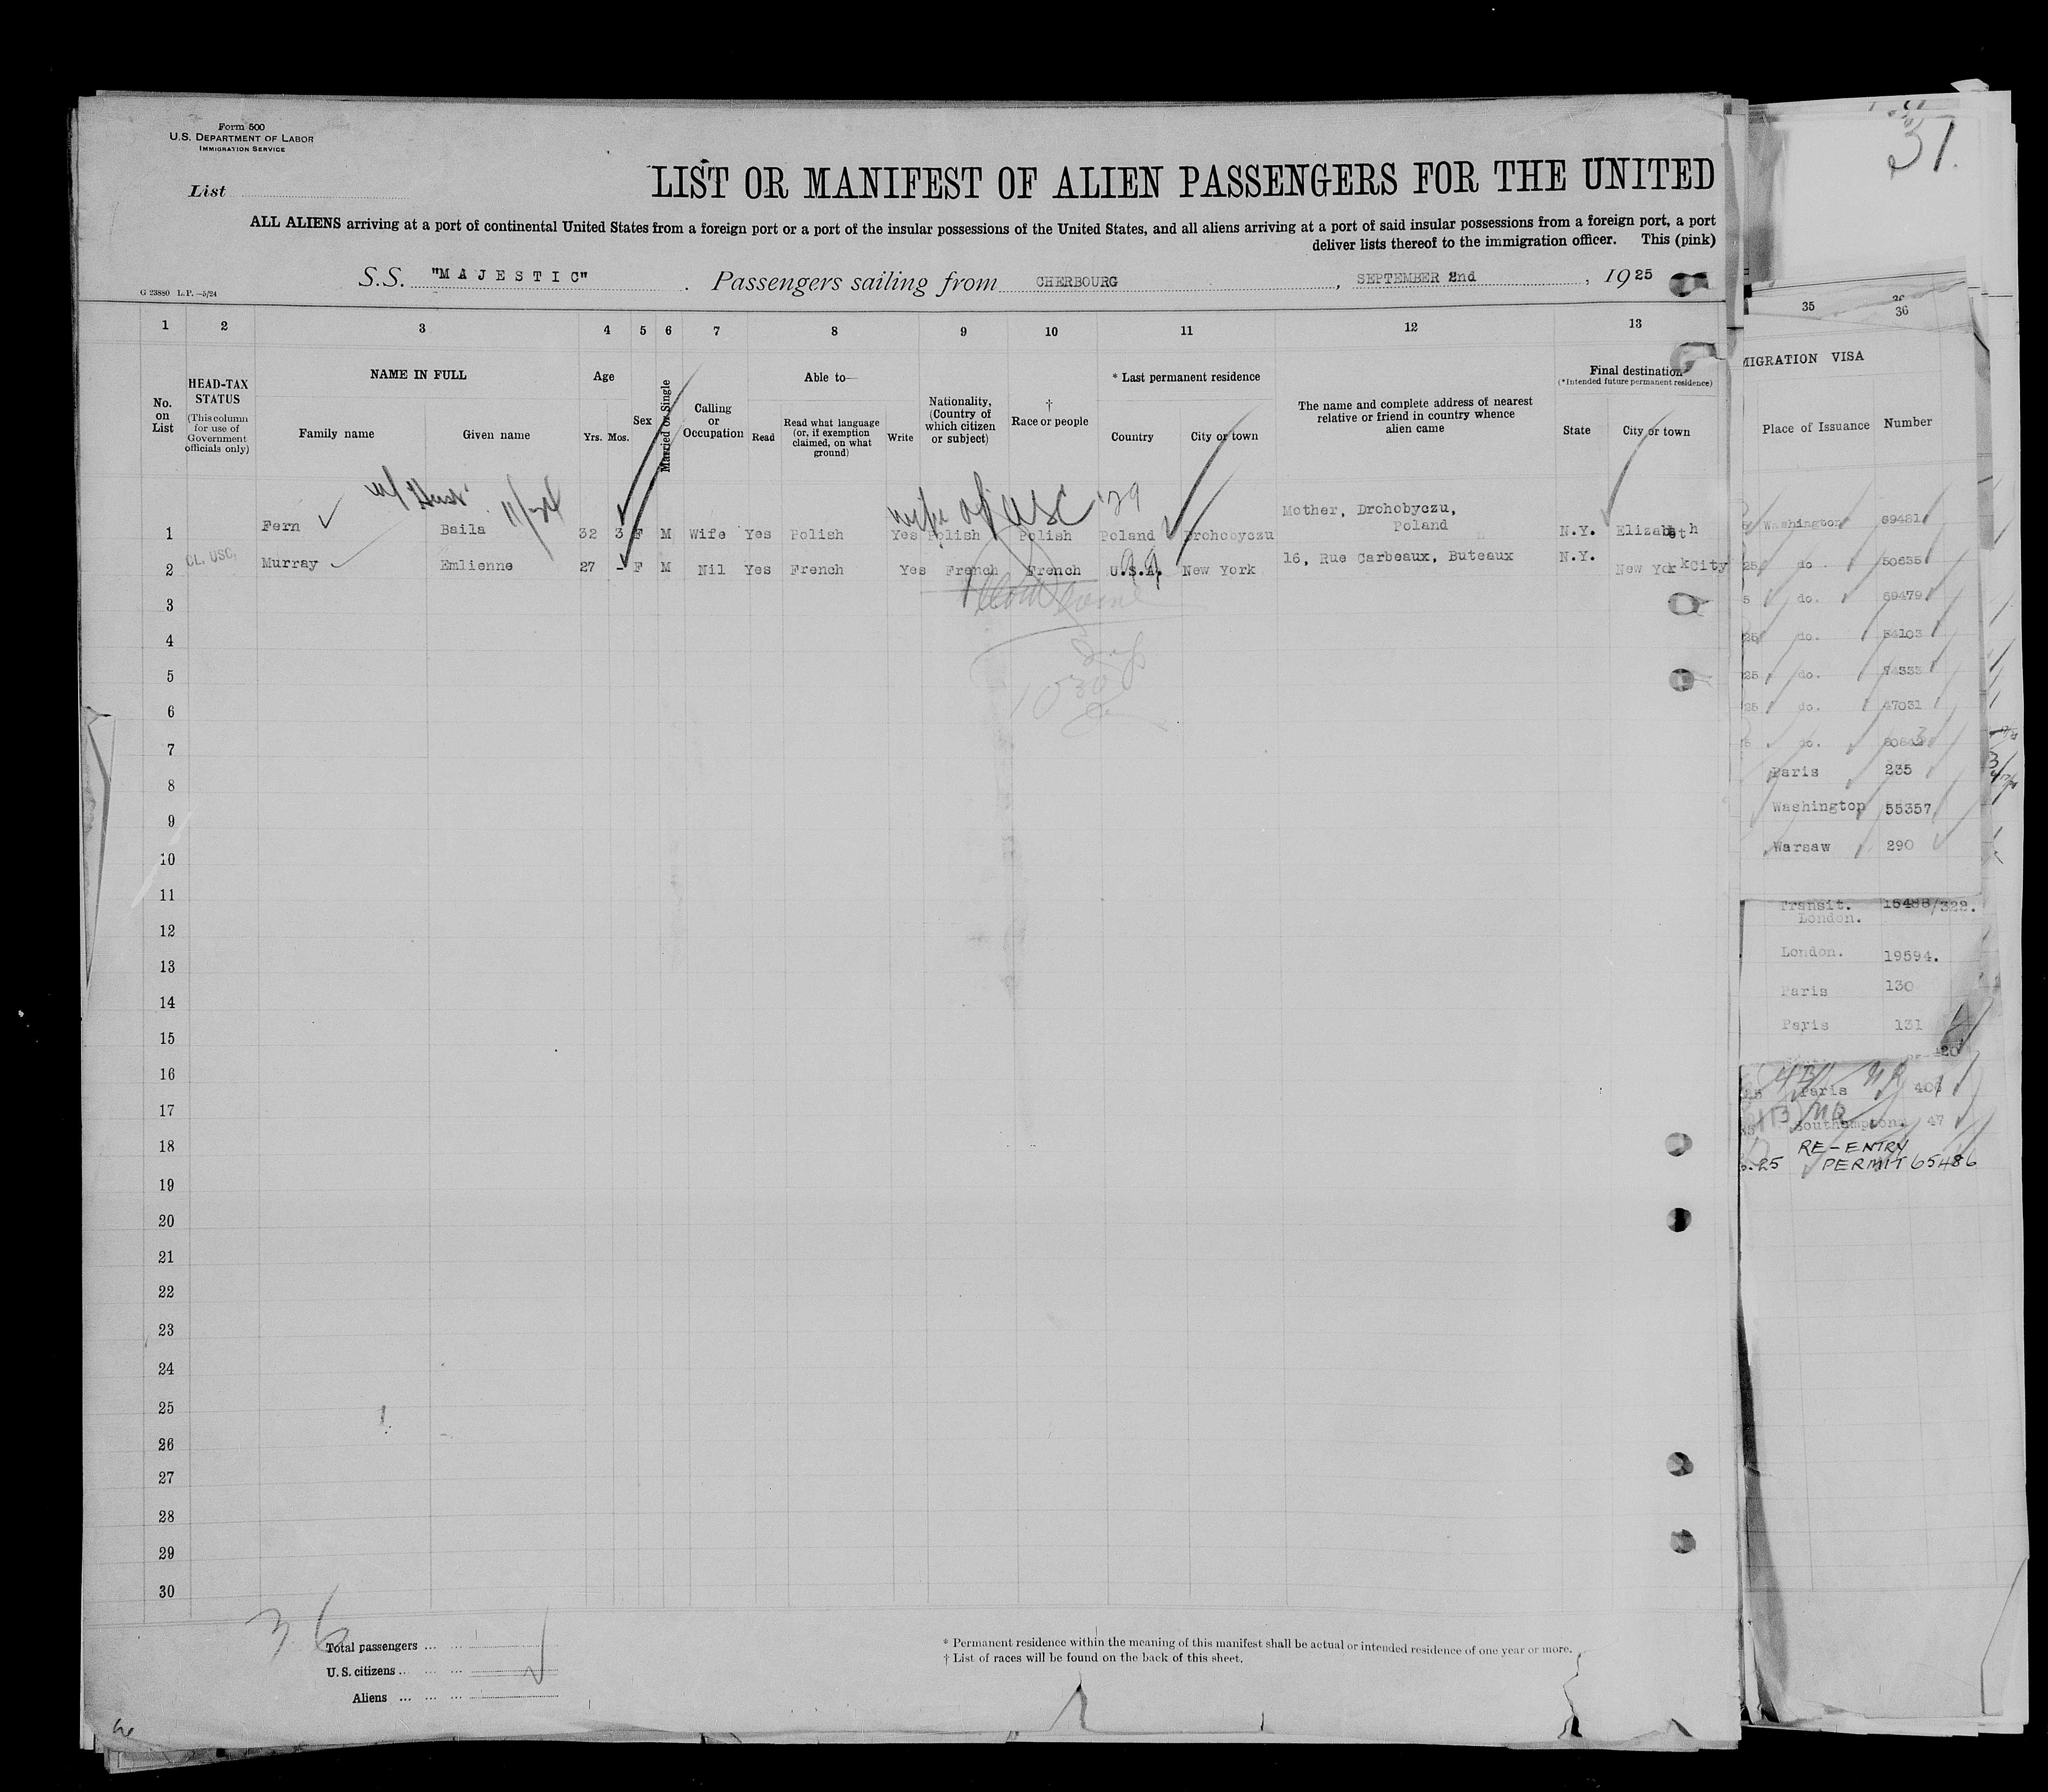 Form 500
U.S. DEPARTMENT OF LABOR
IMMIGRATION SERVICE
31.
List
LIST OR MANIFEST OF ALIEN PASSENGERS FOR THE UNITED
ALL ALIENS arriving at a port of continental United States from a foreign port or a port of the insular possessions of the United States, and all aliens arriving at a port of said insular possessions from a foreign port, a port
deliver lists thereof to the immigration officer. This (pink)
S.S. "MAJESTIC". Passengers sailing from CHERBOURG, SEPTEMBER 2nd, 1925
G 23880 L.P.—5/24
1 2 3 4 5 6 7 8 9 10 11 12 13 35 36
No. on List
HEAD-TAX STATUS
(This column for use of Government officials only)
NAME IN FULL
Family name Given name
Age
Yrs. Mos.
Sex
Married or Single
Calling or Occupation
Able to—
Read Read what language (or, if exemption claimed, on what ground) Write
Nationality, (Country of which citizen or subject)
† Race or people
* Last permanent residence
Country City or town
The name and complete address of nearest relative or friend in country whence alien came
Final destination
(*Intended future permanent residence)
State City or town
MIGRATION VISA
Place of Issuance Number
w/ Husb. 11/24
wife of USC '29
1 Fern Baila 32 3 F M Wife Yes Polish Yes Polish Polish Poland Drohobyczu Mother, Drohobyczu, Poland N.Y. Elizabeth
CL. USC.
2 Murray Emlienne 27 - F M Nil Yes French Yes French French U.S.A. New York 16, Rue Carbeaux, Buteaux N.Y. New York City
3
4
5
6
7
8
9
10
11
12
13
14
15
16
17
18
19
20
21
22
23
24
25
26
27
28
29
30
1030
Washington 69481
25 do. 50635
do. 69479
25 do. 54103
25 do. 74333
25 do. 47031
do.
Paris 235
Washington 55357
Warsaw 290
Transit. London. 15488/322.
London. 19594.
Paris 130
Paris 131
Paris 406
Southampton. 47
RE-ENTRY
25 PERMIT 65486
36
Total passengers ... ...
U.S. citizens ... ... ...
Aliens ... ... ...
* Permanent residence within the meaning of this manifest shall be actual or intended residence of one year or more.
† List of races will be found on the back of this sheet.